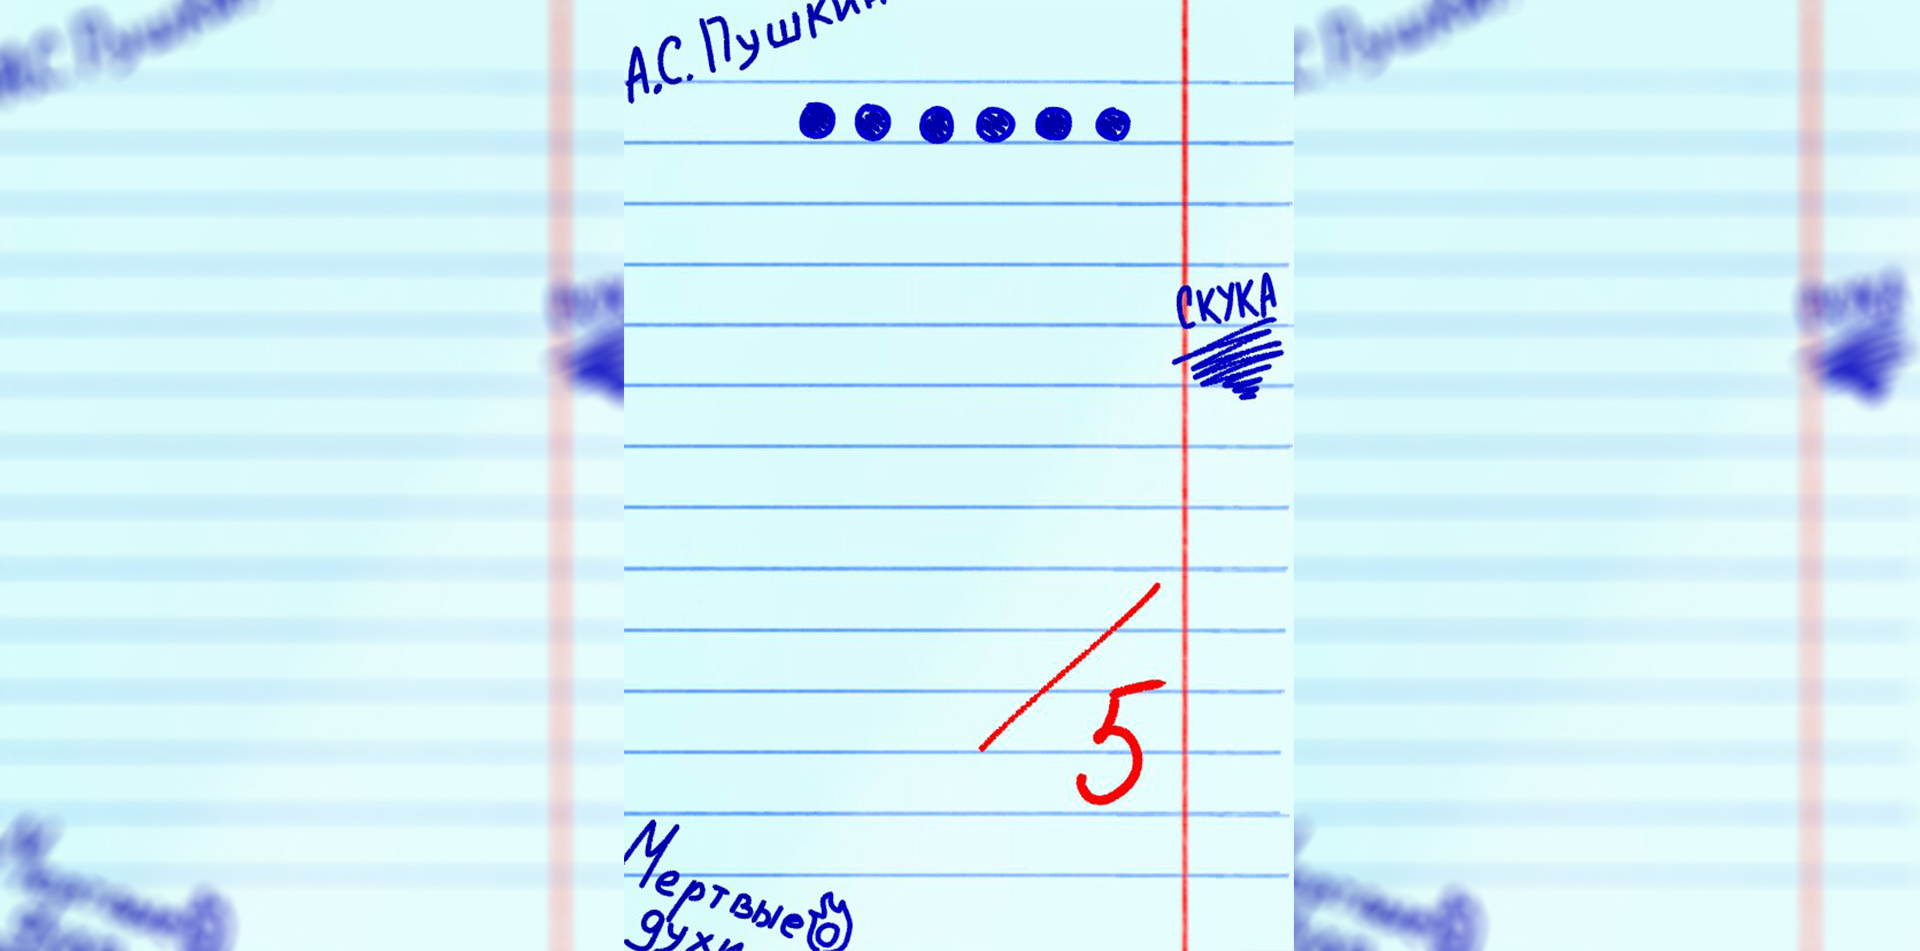 А.С. Пушкин
СКУКА
5
Мертвые
духи